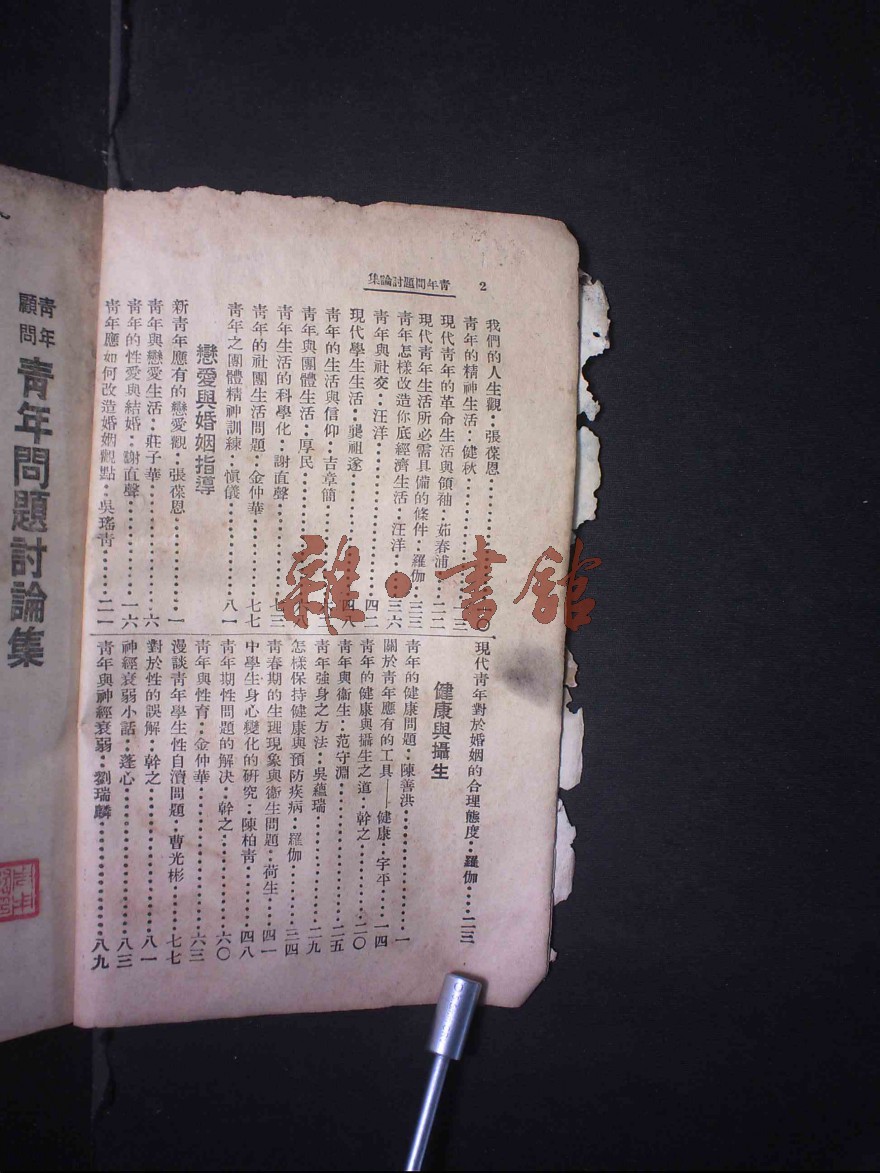 2
青年問題討論集
我們的人生觀：張葆恩……一〇
青年的精神生活：健秋……一三
現代青年的革命生活與領袖：茹春浦……二二
現代青年生活所必需具備的條件：羅伽……三三
青年怎樣改造你底經濟生活：汪洋……三六
青年與社交：汪洋……四二
現代學生生活：龔祖遂……四八
青年的生活與信仰：吉章簡……
青年與團體生活：厚民……
青年生活的科學化：謝直聲……七三
青年的社團生活問題：金仲華……七七
青年之團體精神訓練：愼儀……八一
戀愛與婚姻指導
新青年應有的戀愛觀：張葆恩……一
青年與戀愛生活：莊子華……六
青年的性愛與結婚：謝直聲……一六
青年應如何改造婚姻觀點：吳瑤青……二一
現代青年對於婚姻的合理態度：羅伽……二三
健康與攝生
青年的健康問題：陳善洪……一
關於青年應有的工具——健康：宇平……一四
青年的健康與攝生之道：幹之……二〇
青年與衞生：范守淵……二五
青年強身之方法：吳蘊瑞……二九
怎樣保持健康與預防疾病：羅伽……三四
青春期的生理現象與衞生問題：荷生……四一
中學生身心變化的研究：陳柏青……四八
青年期性問題的解決：幹之……六〇
青年與性育：金仲華……六三
漫談青年學生性自瀆問題：曹光彬……七七
對於性的誤解：幹之……八一
神經衰弱小話：蓬心……八三
青年與神經衰弱：劉瑞麟……八九
青年顧問
青年問題討論集
雜·書館